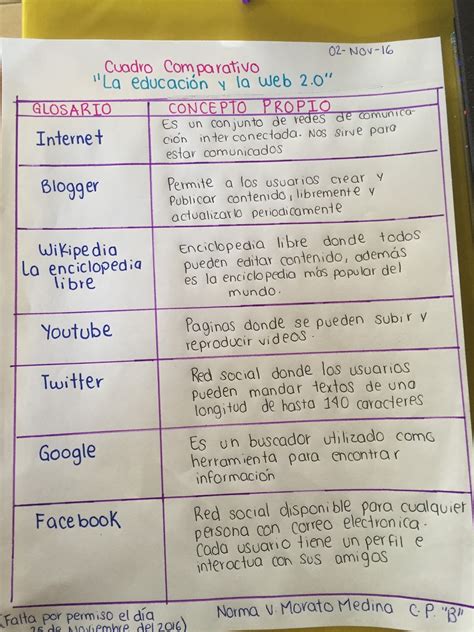 02-Nov-16
Cuadro Comparativo
"La educación y la web 2.0"
GLOSARIO
CONCEPTO PROPIO
Internet
Es un conjunto de redes de comunica-
ción interconectada. Nos sirve para
estar comunicados
Blogger
Permite a los usuarios crear y
Publicar contenido, libremente y
actualizarlo periodicamente
Wikipedia
La enciclopedia
libre
Enciclopedia libre donde todos
pueden editar contenido, además
es la enciclopedia más popular del
mundo.
Youtube
Paginas donde se pueden subir y
reproducir videos.
Twitter
Red social donde los usuarios
pueden mandar textos de una
longitud de hasta 140 caracteres
Google
Es un buscador utilizado como
herramienta para encontrar
información
Facebook
Red social disponible para cualquier
persona con correo electronica.
Cada usuario tiene un perfil e
interactua con sus amigos
(Falta por permiso el día
25 de Noviembre del 2016)
Norma V. Morato Medina C.P. "B"